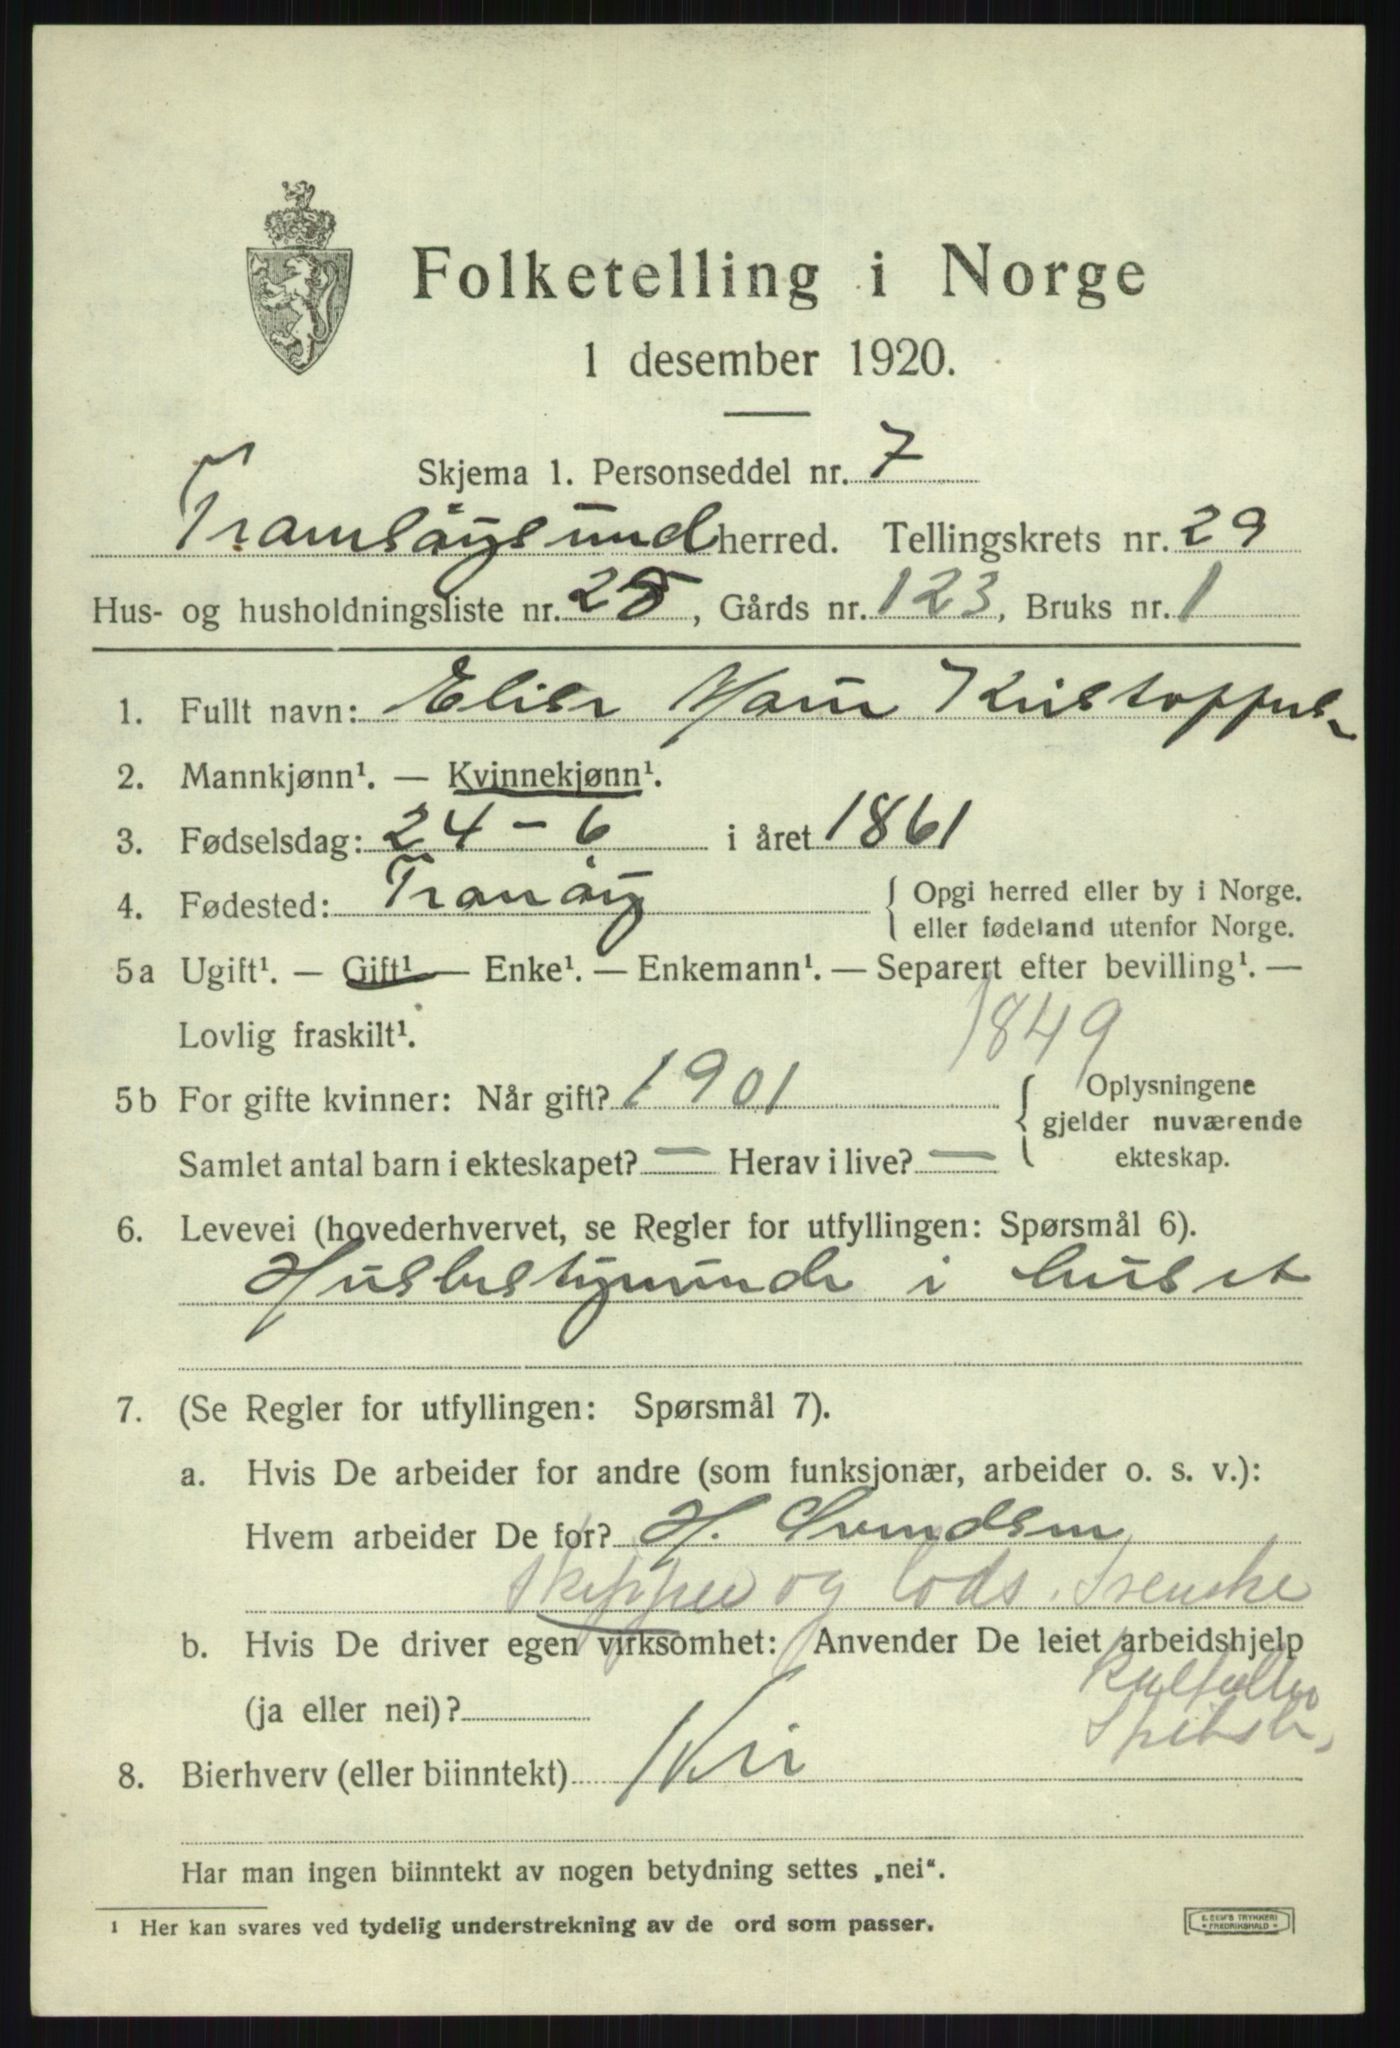 Folketelling i Norge
1 desember 1920.
Skjema 1. Personseddel nr. 7
Tromsöysund herred. Tellingskrets nr. 29
Hus- og husholdningsliste nr. 25, Gårds nr. 123, Bruks nr. 1
1. Fullt navn: Elise Marie Kristoffers.
2. Mannkjønn¹. — Kvinnekjønn¹.
3. Fødselsdag: 24 - 6 i året 1861
4. Fødested: Tranöy { Opgi herred eller by i Norge.
eller fødeland utenfor Norge.
5a Ugift¹. — Gift¹ — Enke¹. — Enkemann¹. — Separert efter bevilling¹. —
Lovlig fraskilt¹. 1849
5b For gifte kvinner: Når gift? 1901 { Oplysningene
gjelder nuværende
Samlet antal barn i ekteskapet? — Herav i live? — ekteskap.
6. Levevei (hovederhvervet, se Regler for utfyllingen: Spørsmål 6).
Husbestyrende i huset
7. (Se Regler for utfyllingen: Spørsmål 7).
a. Hvis De arbeider for andre (som funksjonær, arbeider o. s. v.):
Hvem arbeider De for? H. Svendsen
Skipper og lods. Svenske
b. Hvis De driver egen virksomhet: Anvender De leiet arbeidshjelp
Kulfelter
(ja eller nei)?
Spitsb.
8. Bierhverv (eller biinntekt) Nei
Har man ingen biinntekt av nogen betydning settes „nei“.
¹ Her kan svares ved tydelig understrekning av de ord som passer.
E. SEM'S TRYKKERI
FREDRIKSHALD